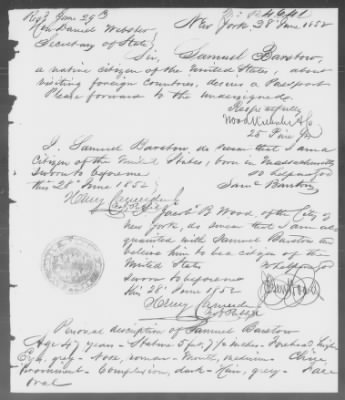 Recd June 29th
No 4641
New York 28 June, 1852
Hon Daniel Webster,
Secretary of State,
Sir, Samuel Barstow,
a native citizen of the United States, about
visiting foreign countries, desires a Passport
Please forward to the undersigned.
Respectfully
25 Pine St
I, Samuel Barstow, do swear that I am a
citizen of the United States, born in Massachusetts
Sworn to before me
So help me God
this 28th June 1852
Saml Barstow
Henry
Jacob B Wood, of the City of
New York, do swear that I am acquainted
with Samuel Barstow
believe him to be a citizen of the
United States
So help me God
Sworn to before me
this 28th June 1852
Henry
Personal description of Samuel Barstow
Age 47 years - Stature 5 feet, 7 1/2 inches - Forehead high
Eyes, grey - Nose, roman - Mouth, medium - Chin,
Prominent - Complexion, dark - Hair, grey - Face
Oval